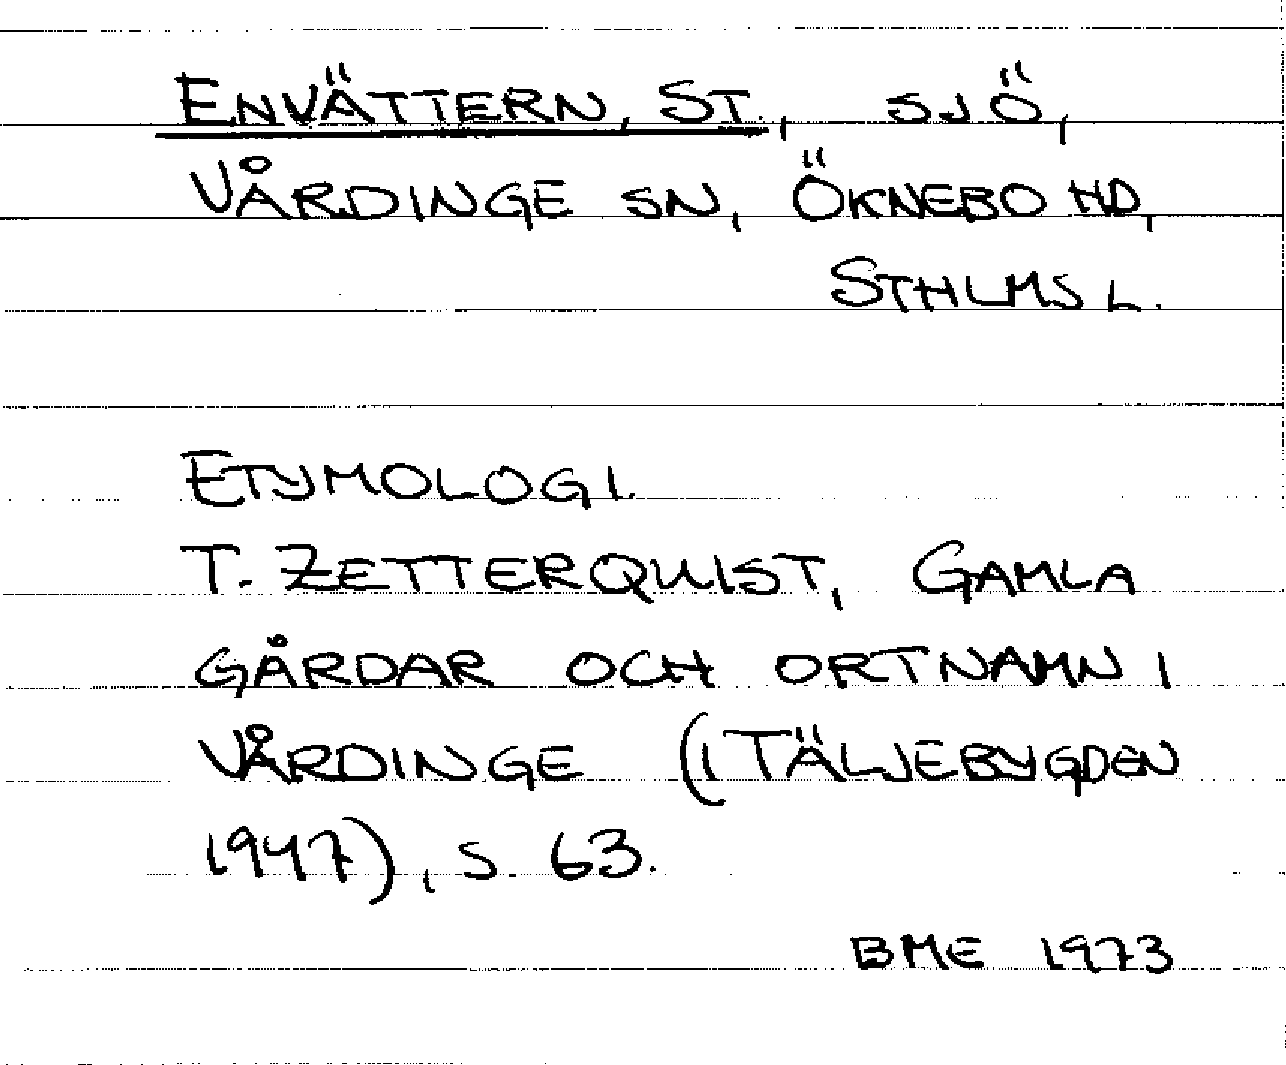 ENVÄTTERN, ST., SJÖ,
VÅRDINGE SN, ÖKNEBO HD,
STHLMS L.
ETYMOLOGI.
T. ZETTERQUIST, GAMLA
GÅRDAR OCH ORTNAMN I
VÅRDINGE (I TÄLJEBYGDEN
1947), S. 63.
BME 1973